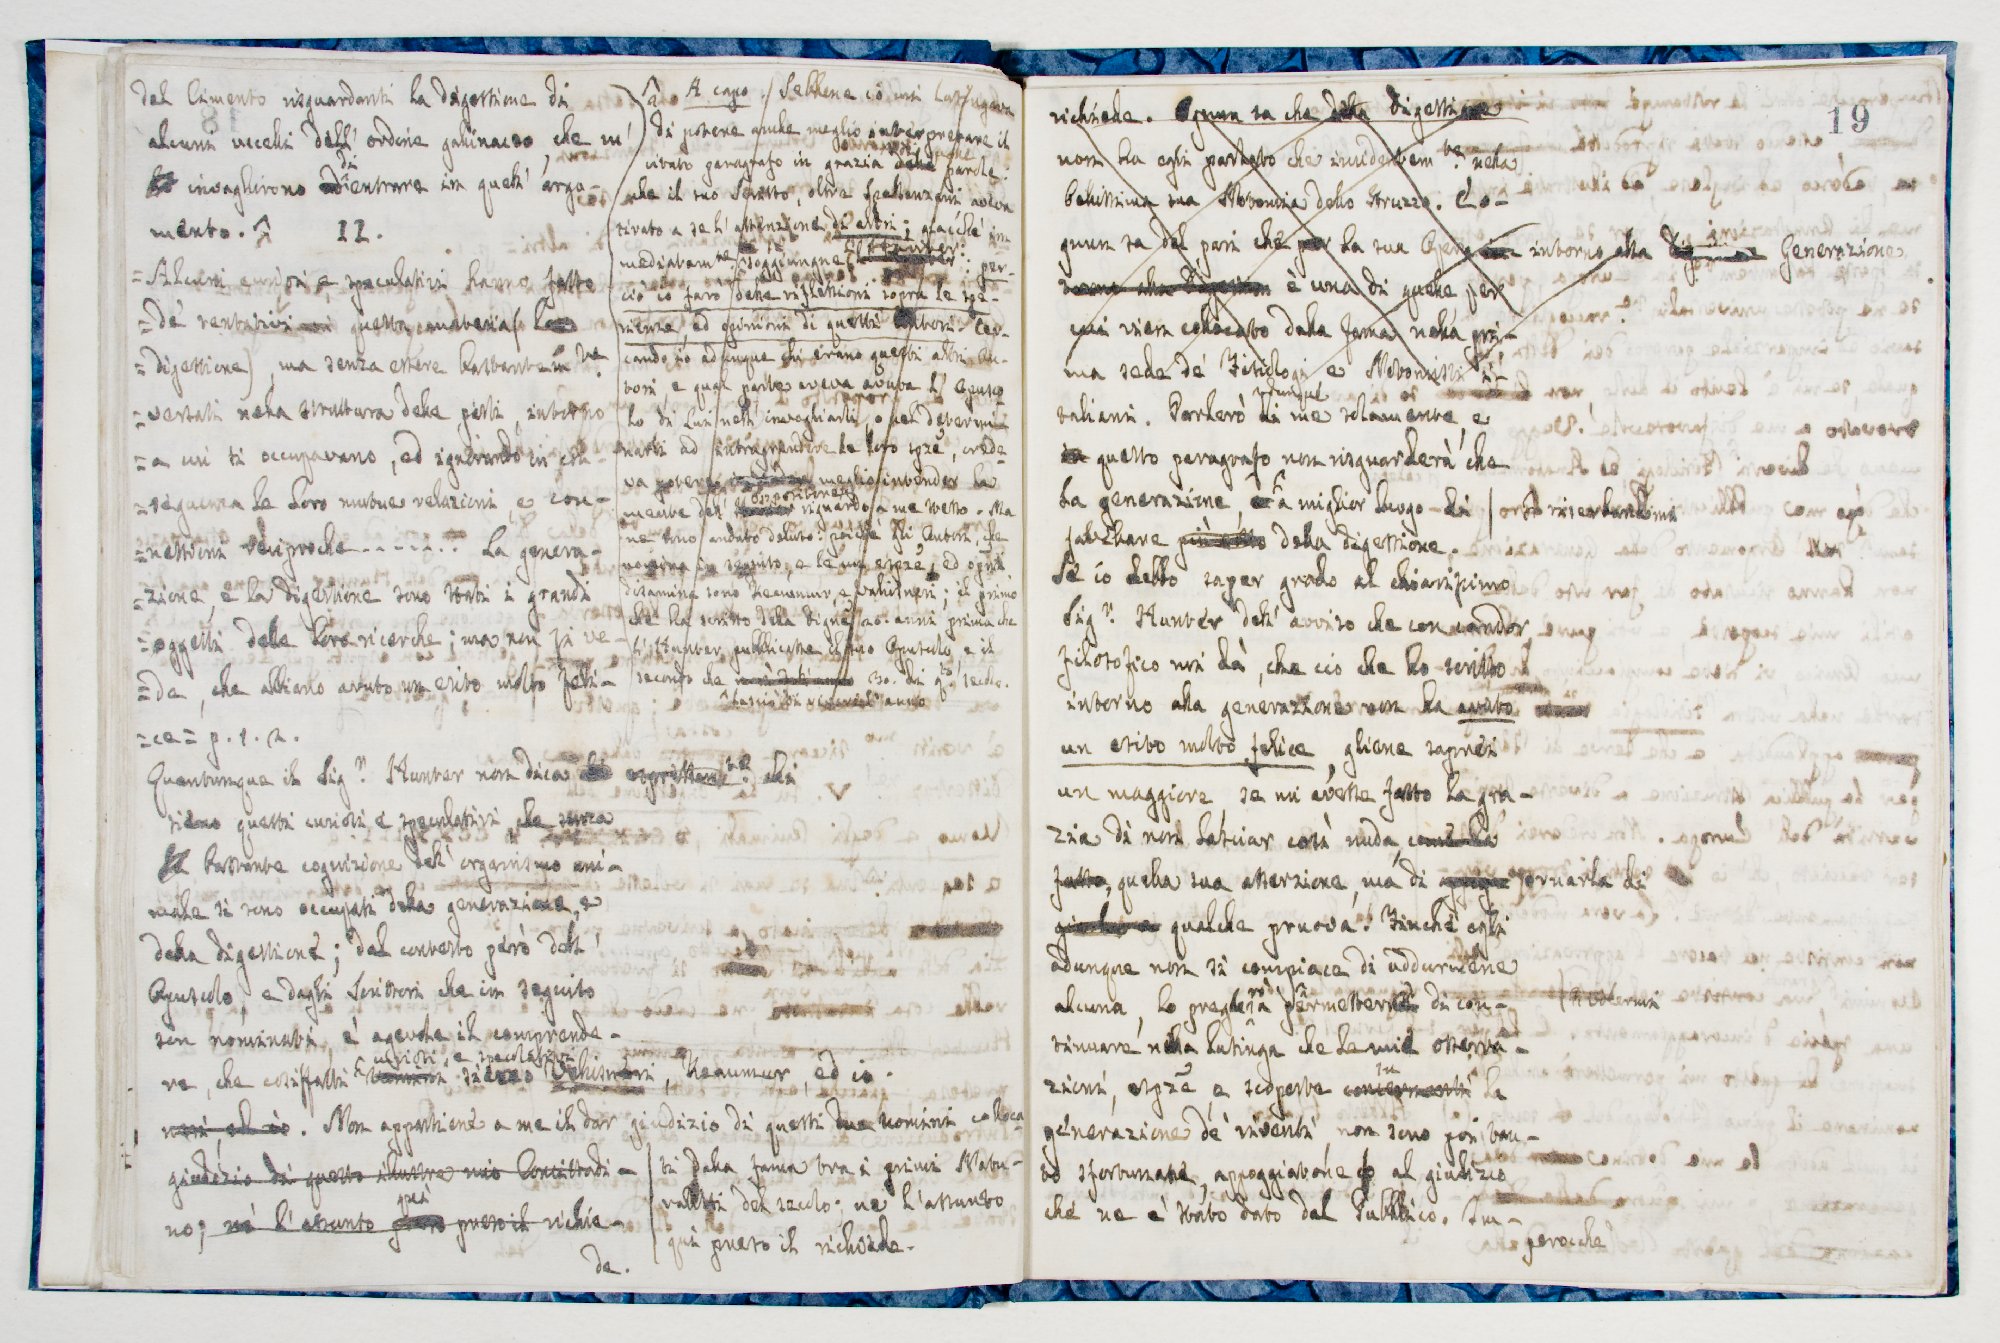 del Cimento risguardanti la digestione di
alcuni uccelli dell' ordine gallinaceo, che m'
invaglirono di entrare in quest' argo-
mento. 11.
= Alcuni curiosi e speculativi hanno fatto
= de' tentativi questa materia (la
= digestione), ma senza essere bastantem.te
= versati nella struttura delle parti, intorno
= a cui si occupavano, ed ignorando in con-
= seguenza le loro mutue relazioni, e con-
= nessioni reciproche ------- La genera-
= zione, e la digestione sono stati i grandi
= oggetti delle loro ricerche; ma non si ve-
= de, che abbiano avuto un esito molto feli-
= ce = p. 1. 2.
Quantunque il Sig.r Hunter non dica espressam.te chi
sieno questi curiosi e speculativi che senza
bastante cognizione dell' organismo ani-
male si sono occupati della generazione, e
della digestione; dal contesto però dell'
Opuscolo, e dagli Scrittori che in seguito
son nominati, è agevole il comprende-
re, che cosiffatti curiosi e speculativi sieno Vallisneri, Reaumur, ed io.
Non appartiene a me il dar giudizio di questi due uomini colloca-
giudizio di questo illustre mio Concittadi-
no; né l'assunto preso il richie-
de.
ti dalla fama tra i primi Natu-
ralisti del secolo; né l'assunto
qui preso il richiede.
A capo. Sebbene io mi lusingava
di potere anche meglio interpretare il
citato paragrafo in grazia parole:
che il suo Scritto, oltre Spallanzani aveva
tirato a se l'attenzione di altri; giacché im
mediatam.te soggiugne : per-
ciò io farò delle riflessioni sopra le spe-
rienze ed opinioni di questi Autori. Cer-
cando io adunque chi erano questi altri Au-
tori, e qual parte aveva avuta l' Opusco
lo di lui nell' invogliarli, o nel determi-
narli ad intraprendere le loro spze, crede-
va potere meglio intender la
mente dell' riguardo a me stesso. Ma
ne sono andato deluso: poiché gli Autori, che
nomina in seguito, e le cui espze, ed opini
disamina sono Reaumur, e Vallisneri; il primo
che ha scritto della digne 20. anni prima che
l' Hunter pubblicasse il suo Opuscolo, e il
secondo che 30. di q.to secolo.
lasciò di vivere l'anno
19
richiede. Ognun sa che della digestione
non ha egli parlato che incidentem.te nella
bellissima sua Notomia dello Struzzo. E o-
gnun sa del pari che la sua Opera intorno alla Generazione
è una di quelle per
cui vien collocato dalla fama nella pri-
ma sede de' Fisiologi e Notomisti I-
taliani. Parlerò adunque di me solamente, e
questo paragrafo non risguarderà che
la generazione, a miglior luogo di / ora riserbandomi
favellare della digestione.
Se io debbo saper grado al chiarissimo
Sig.r Hunter dell' avviso che con candor
filosofico mi dà, che ciò che ho scritto
intorno alla generazione non ha avuto
un esito molto felice, gliene saprei
un maggiore se mi avesse fatto la gra-
zia di non lasciar così nuda,
quella sua asserzione, ma di fornarla di
qualche pruova. Finché egli
adunque non si compiace di addurmene
alcuna, lo pregherò di con-
tinuare nella lusinga che le mie osserva-
zioni, espze e scoperte su la
generazione de' viventi non sono poi tan-
to sfortunate, appoggiatone al giudizio
che ne è stato dato dal Pubblico. Im-
perocché